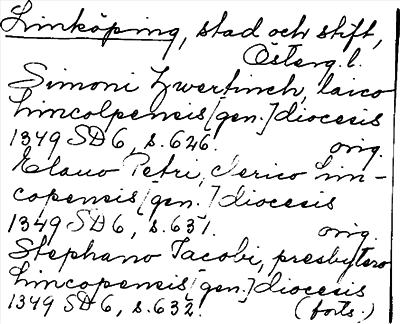 Linköping, stad och stift,
Österg. l.
Simoni Zwerfinch, laico
Lincolpensis [gen.] diocesis
1349 SD 6, s. 626. orig.
Elavo Petri, clerico Lin-
copensis [gen.] diocesis
1349 SD 6, s. 631. orig.
Stephano Jacobi, presbytero
Lincopensis [gen.] diocesis
1349 SD 6, s. 632. (forts.)